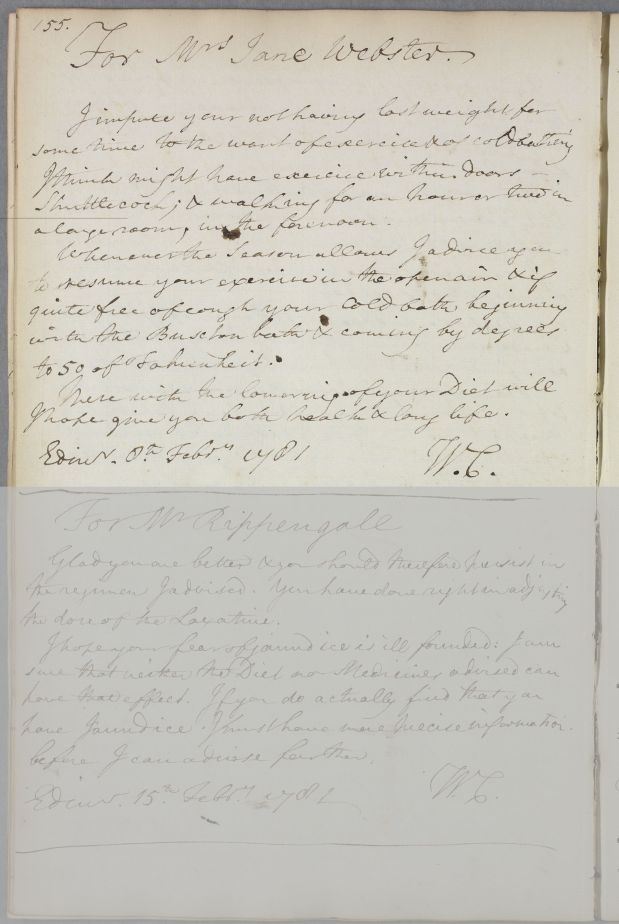 155.
For Mrs Jane Webster.
I impute your not having lost weight for
some time to the want of exercise & of cold bathing
I think might have exercise within doors –
Shuttlecock; & walking for an hour or two in
a large room, in the forenoon.
Whenever the Season allows I advise you
to resume your exercise in the open air & if
quite free of cough your cold bath beginning
with the Buxton bath & coming by degrees
to 50 of Fahrenheit.
These with the lowering of your Diet will
I hope give you both health & long life.
Edinr. 8th Febry 1781 W.C.
For Mr Rippengall
Glad you are better & you should therefore persist in
the regimen I advised. You have done right in adjusting
the dose of the Laxative.
I hope your fear of jaundice is ill founded: I am
sure that neither the Diet nor Medicines advised can
have that effect. If you do actually find that you
have Jaundice I must have more precise information
before I can advise farther.
Edinr. 15th Febry 1781 W.C.